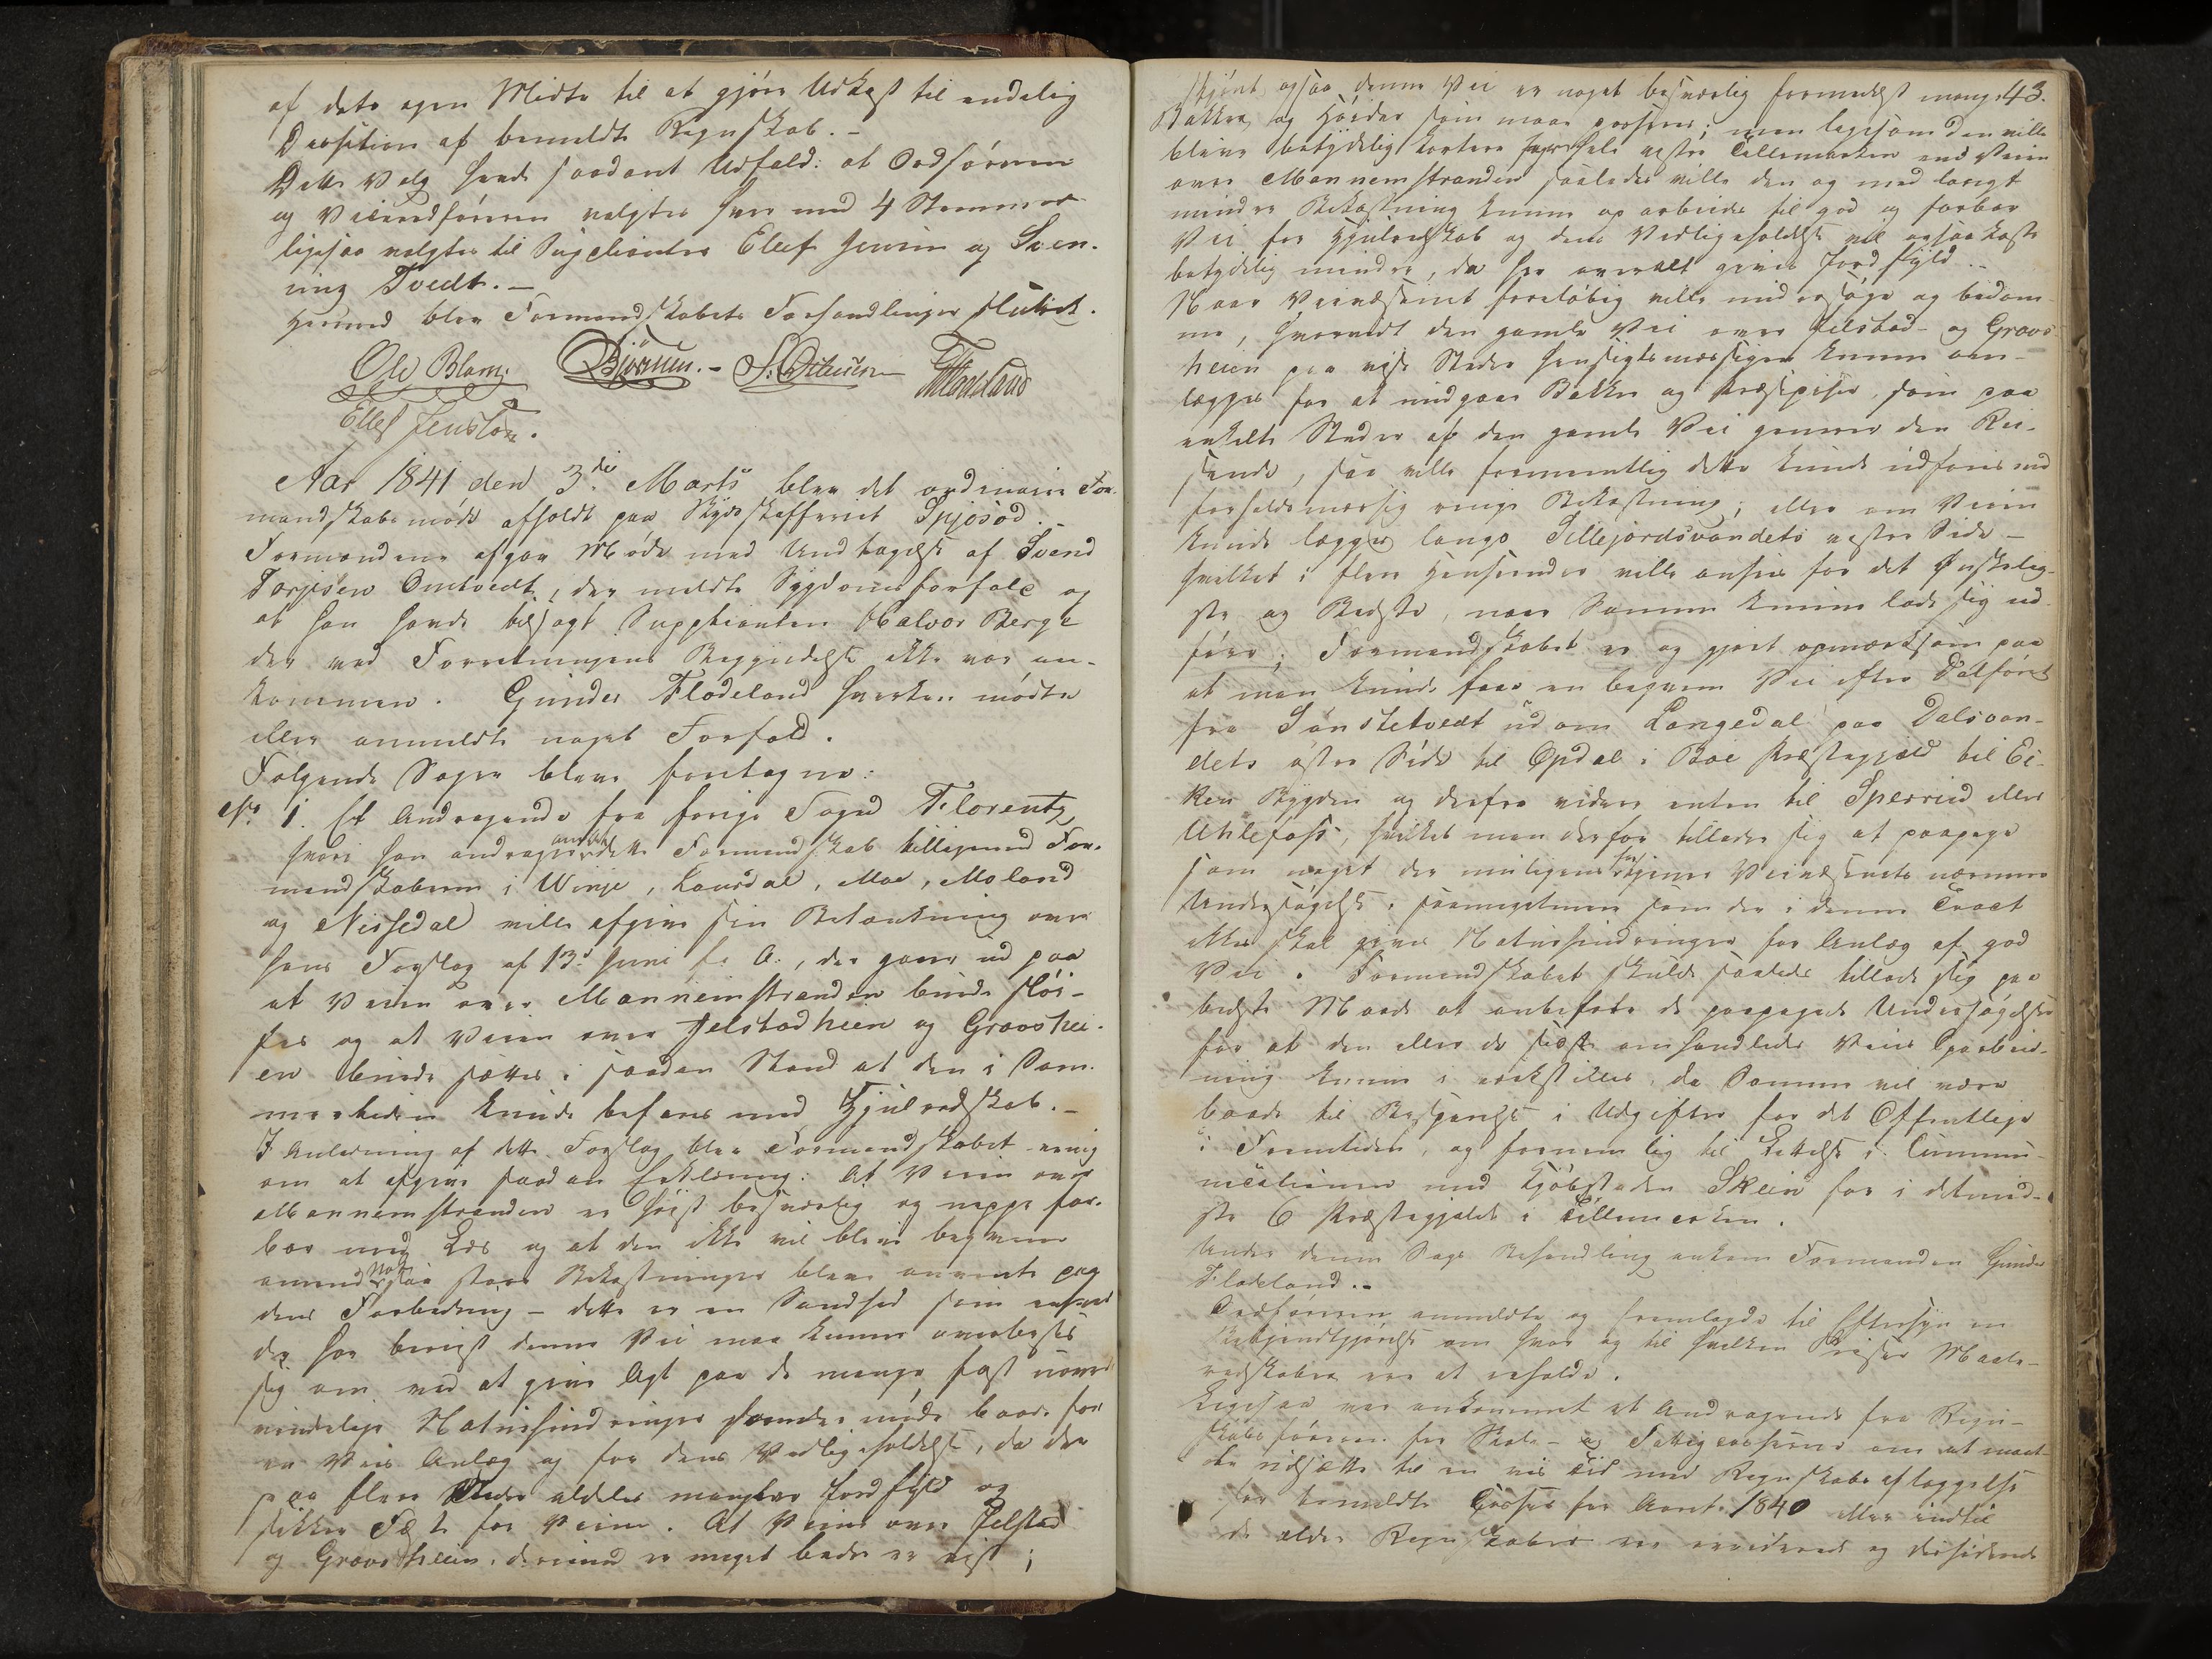 af dets egen Midte til at gjøre Udkast til endelig
Decision af bemeldte Regnskab. -
Dette Valg havde saadant Udfald: at Ordføreren
og Viceordføreren valgtes hver med 4 Stemmer
ligesaa valgtes til Suppleanter Ellef Jenson og Sven-
ning Tvedt. -
Hermed blev Formandskabets Forhandlinger sluttet.
Ole Blom. Bjørnsen. - S. Ottersen
Ellef Jenson.
Aar 1841 den 3die Marts blev det ordinaire For-
mandskabsmøde afholdt paa Skydsskafferiet Spjosod. -
Formændene afgav Møde med Undtagelse af Svend
Torjesen Omtvedt, der meldte Sygdomsforfald og
at han havde tilsagt Suppleanten Halvor Berge
der ved Forretningens Begyndelse ikke var an-
kommen. Gunder Flodeland hverken mødte
eller anmeldte noget Forfald.
Følgende Sager bleve foretagne:
No 1. Et Andragende fra forige Foged Florentz,
hvori han andrager om at dette Formandskab tilligemed For-
mandskaberne i Winje, Laurdal, Moe, Moland
og Nissedal ville afgive sin Betænkning over
hans Forslag af 13de Juni f. A., der gaaer ud paa
at Veien over Mannemstranden burde sløi-
fes og at Veien over Jelstadheien og Graavshei-
en burde sættes i saadan Stand at den i Som-
mertiden kunde befares med Hjulredskab. -
I Anledning af dette Forslag blev Formandskabet enig
om at afgive saadan Erklæring: At Veien over
Mannemstranden er høist besværlig og neppe far-
bar med Læs og at den ikke vil blive beqvem
omend Nok saa store Bekostninger bleve anvendte paa
dens Forbedring - dette er en Sandhed som enhver
der har bereist denne Vei maa kunne overbevise
sig om ved at give Agt paa de mange fast uover-
vindelige Naturhindringer som der møde baade for
en Veis Anlæg og for dens Vedligeholdelse, da der
paa flere Steder aldeles mangler Jordfyld og
sikker Fæste for Veien. At Veien over Jelstad
og Graavsheien derimod er meget bedre er vist;
43.
skjønt ogsaa denne Vei er noget besværlig formedelst mange
Bakker og Høider som maae passeres; men ligesom den ville
blive betydelig kortere for hele vestre Tellemarken end Veien
over Mannemstranden saaledes ville den og med langt
mindre Bekostning kunne oparbeides til god og farbar
Vei for Hjulredskab og dens Vedligeholdelse vil ogsaa koste
betydelig mindre, da her overalt gives Jordfyld. -
Naar Veivæsenet foreløbig ville undersøge og bedøm-
me, hvorvidt den gamle Vei over Jelstad- og Graavs-
heien paa visse Steder hensigtsmæssigere kunne om-
lægges for at undgaae Bakker og Præcipiser, som paa
enkelte Steder af den gamle Vei generer den Rei-
sende, saa ville formeentlig dette kunde udføres med
forholdsmæssig ringe Bekostning; eller om Veien
kunde lægges langs Sillejordsvandets vestre Side -
hvilket i flere Henseender ville ansees for det Ønskelig-
ste og Bedste, naar Samme kunne lade sig ud-
føre; Formandskabet er og gjort opmærksom paa
at man kunde faae en beqvem Vei efter Dalføret
fra Sønstetvedt ud om Langedal paa Dalsvan-
dets østre Side til Opdal i Bøe Præstegjæld til Ei-
ken Bygden og derfra videre enten til Sperrud eller
Uhlefoss, hvilket man derfor tillader sig at paapege
som noget der muligens fortjener Veivæsenets nærmere
Undersøgelse, saameget mere som der i denne Tract
ikke skal gives Naturhindringer for Anlæg af god
Vei. Formandskabet skulde saaledes tillade sig paa
bedste Maade at anbefale de paapegede Undersøgelser
for at den eller de sidst omhandlede Veies Oparbeid-
ning kunne iverksættes, da Samme vil være
baade til Besparelse i Udgifter for det Offentlige
i Fremtiden, og fornemlig til Lettelse i Commu-
nicationen med Kjøbstaden Skien for i det mind-
ste 6 Præstegjælde i Tellemarken.
Under denne Sags Behandling ankom Formanden Gunder
Flodeland. -
Ordføreren anmeldte og fremlagde til Eftersyn en
Bekjendtgjørelse om hvor og til hvilken Priser Maale-
redskaber ere at erholde.
Ligesaa var ankommet et Andragende fra Regn-
skabsføreren for Skole- og Fattigcasserne om at maat-
te udsætte til en vis Tid med Regnskabs aflæggelse
for bemeldte Casser for Aaret 1840 eller indtil
de ældre Regnskaber ere reviderede og desiderede